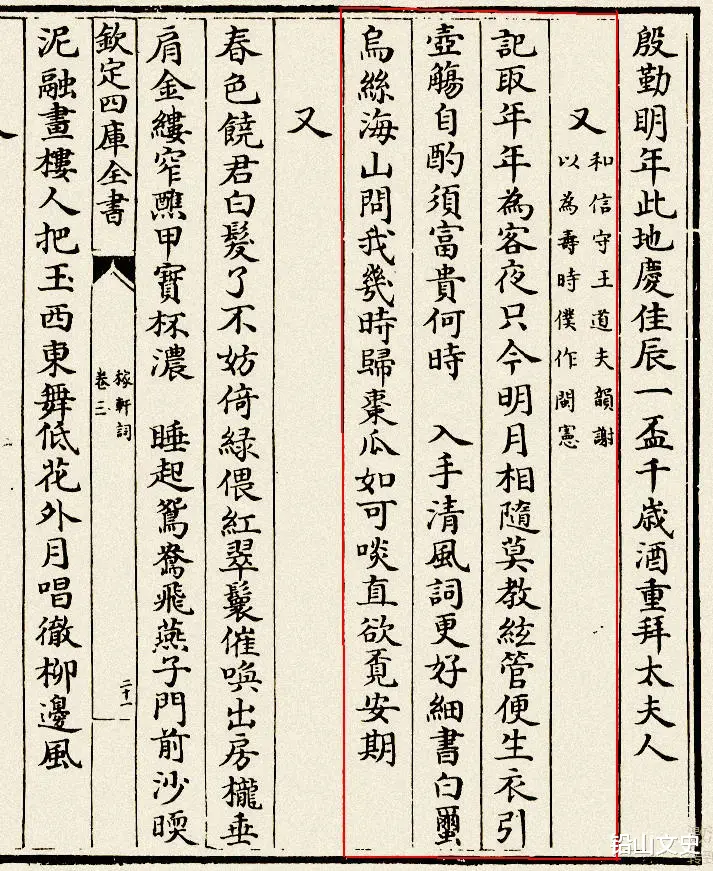 殷勤明年此地慶佳辰一盃千歳酒重拜太夫人
又
和信守王道夫韻謝
以為壽時僕作閩憲
記取年年為客夜只今明月相隨莫教絃管便生衣引
壺觴自酌須富貴何時　入手清風詞更好細書白蠒
烏絲海山問我幾時歸棗瓜如可啖直欲覔安期
又
春色饒君白髮了不妨倚綠偎紅翠鬟催喚出房櫳垂
肩金縷窄醮甲寶杯濃　睡起鴛鴦飛燕子門前沙㬉
欽定四庫全書
稼軒詞
卷三
二十一
泥融畫樓人把玉西東舞低花外月唱徹柳邊風
铅山文史